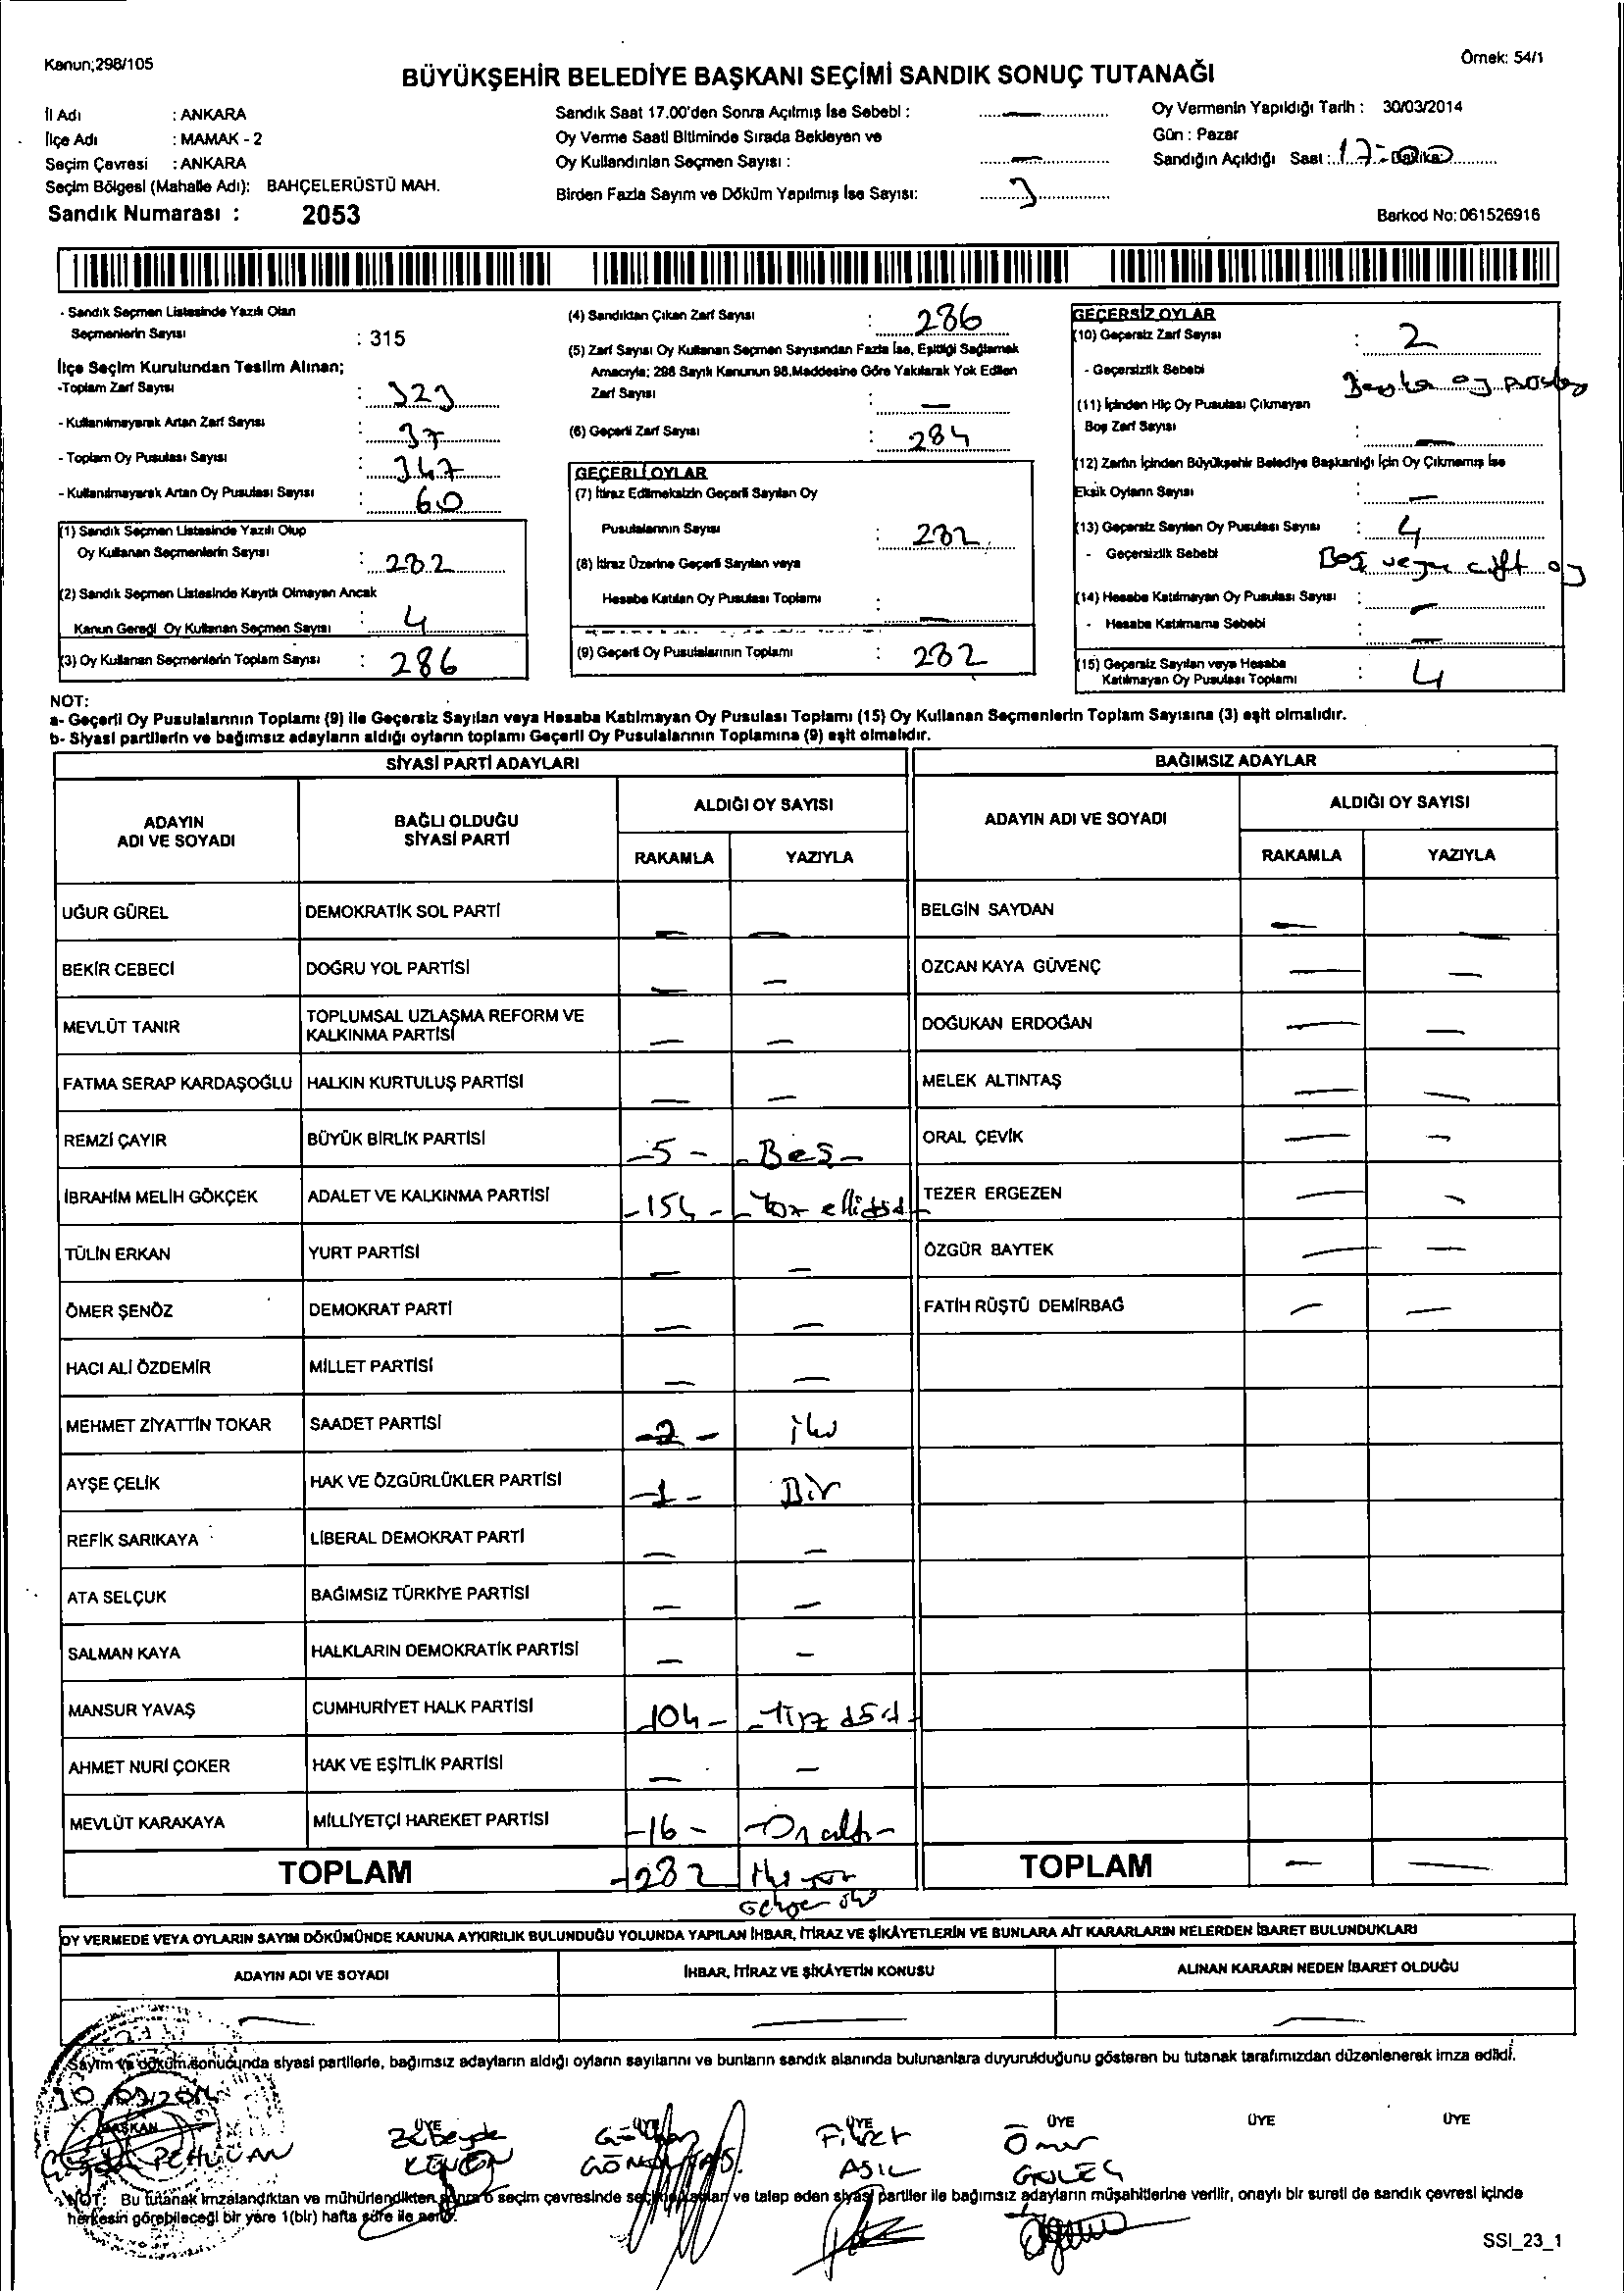 Kanun;298/105
Örnek: 54/1
BÜYÜKŞEHİR BELEDİYE BAŞKANI SEÇİMİ SANDIK SONUÇ TUTANAĞI
İl Adı : ANKARA
İlçe Adı : MAMAK - 2
Seçim Çevresi : ANKARA
Seçim Bölgesi (Mahalle Adı): BAHÇELERÜSTÜ MAH.
Sandık Numarası : 2053
Sandık Saat 17.00'den Sonra Açılmış İse Sebebi : —
Oy Verme Saati Bitiminde Sırada Bekleyen ve
Oy Kullandırılan Seçmen Sayısı : —
Birden Fazla Sayım ve Döküm Yapılmış İse Sayısı: 3
Oy Vermenin Yapıldığı Tarih : 30/03/2014
Gün : Pazar
Sandığın Açıldığı Saat : 17-00
Barkod No: 061526916
- Sandık Seçmen Listesinde Yazılı Olan
Seçmenlerin Sayısı : 315
İlçe Seçim Kurulundan Teslim Alınan;
-Toplam Zarf Sayısı : 323
- Kullanılmayarak Artan Zarf Sayısı : 37
- Toplam Oy Pusulası Sayısı : 347
- Kullanılmayarak Artan Oy Pusulası Sayısı : 60
(1) Sandık Seçmen Listesinde Yazılı Olup
Oy Kullanan Seçmenlerin Sayısı : 282
(2) Sandık Seçmen Listesinde Kayıtlı Olmayan Ancak
Kanun Gereği Oy Kullanan Seçmen Sayısı : 4
(3) Oy Kullanan Seçmenlerin Toplam Sayısı : 286
(4) Sandıktan Çıkan Zarf Sayısı : 286
(5) Zarf Sayısı Oy Kullanan Seçmen Sayısından Fazla İse, Eşitliği Sağlamak
Amacıyla; 298 Sayılı Kanunun 98.Maddesine Göre Yakılarak Yok Edilen
Zarf Sayısı : —
(6) Geçerli Zarf Sayısı : 284
GEÇERLİ OYLAR
(7) İtiraz Edilmeksizin Geçerli Sayılan Oy
Pusulalarının Sayısı : 282
(8) İtiraz Üzerine Geçerli Sayılan veya
Hesaba Katılan Oy Pusulası Toplamı : —
(9) Geçerli Oy Pusulalarının Toplamı : 282
GEÇERSİZ OYLAR
(10) Geçersiz Zarf Sayısı : 2
- Geçersizlik Sebebi Başka oy
(11) İçinden Hiç Oy Pusulası Çıkmayan
Boş Zarf Sayısı : —
(12) Zarfın İçinden Büyükşehir Belediye Başkanlığı İçin Oy Çıkmamış İse
Eksik Oyların Sayısı : —
(13) Geçersiz Sayılan Oy Pusulası Sayısı : 4
- Geçersizlik Sebebi Boş veya çift oy
(14) Hesaba Katılmayan Oy Pusulası Sayısı : —
- Hesaba Katılmama Sebebi : —
(15) Geçersiz Sayılan veya Hesaba
Katılmayan Oy Pusulası Toplamı : 4
NOT:
a- Geçerli Oy Pusulalarının Toplamı (9) ile Geçersiz Sayılan veya Hesaba Katılmayan Oy Pusulası Toplamı (15) Oy Kullanan Seçmenlerin Toplam Sayısına (3) eşit olmalıdır.
b- Siyasi partilerin ve bağımsız adayların aldığı oyların toplamı Geçerli Oy Pusulalarının Toplamına (9) eşit olmalıdır.
SİYASİ PARTİ ADAYLARI
BAĞIMSIZ ADAYLAR
ADAYIN
ADI VE SOYADI
BAĞLI OLDUĞU
SİYASİ PARTİ
ALDIĞI OY SAYISI
RAKAMLA YAZIYLA
ADAYIN ADI VE SOYADI
ALDIĞI OY SAYISI
RAKAMLA YAZIYLA
UĞUR GÜREL DEMOKRATİK SOL PARTİ — — BELGİN SAYDAN — —
BEKİR CEBECİ DOĞRU YOL PARTİSİ — — ÖZCAN KAYA GÜVENÇ — —
MEVLÜT TANIR TOPLUMSAL UZLAŞMA REFORM VE
KALKINMA PARTİSİ — — DOĞUKAN ERDOĞAN — —
FATMA SERAP KARDAŞOĞLU HALKIN KURTULUŞ PARTİSİ — — MELEK ALTINTAŞ — —
REMZİ ÇAYIR BÜYÜK BİRLİK PARTİSİ -5- -Beş- ORAL ÇEVİK — —
İBRAHİM MELİH GÖKÇEK ADALET VE KALKINMA PARTİSİ -154- -Yüz ellidört- TEZER ERGEZEN — —
TÜLİN ERKAN YURT PARTİSİ — — ÖZGÜR BAYTEK — —
ÖMER ŞENÖZ DEMOKRAT PARTİ — — FATİH RÜŞTÜ DEMİRBAĞ — —
HACI ALİ ÖZDEMİR MİLLET PARTİSİ — —
MEHMET ZİYATTİN TOKAR SAADET PARTİSİ -2- iki
AYŞE ÇELİK HAK VE ÖZGÜRLÜKLER PARTİSİ -1- Bir
REFİK SARIKAYA LİBERAL DEMOKRAT PARTİ — —
ATA SELÇUK BAĞIMSIZ TÜRKİYE PARTİSİ — —
SALMAN KAYA HALKLARIN DEMOKRATİK PARTİSİ — —
MANSUR YAVAŞ CUMHURİYET HALK PARTİSİ -104- -Yüz dört-
AHMET NURİ ÇOKER HAK VE EŞİTLİK PARTİSİ — —
MEVLÜT KARAKAYA MİLLİYETÇİ HAREKET PARTİSİ -16- -On altı-
TOPLAM -282 İki yüz
seksen iki
TOPLAM — —
OY VERMEDE VEYA OYLARIN SAYIM DÖKÜMÜNDE KANUNA AYKIRILIK BULUNDUĞU YOLUNDA YAPILAN İHBAR, İTİRAZ VE ŞİKÂYETLERİN VE BUNLARA AİT KARARLARIN NELERDEN İBARET BULUNDUKLARI
ADAYIN ADI VE SOYADI İHBAR, İTİRAZ VE ŞİKÂYETİN KONUSU ALINAN KARARIN NEDEN İBARET OLDUĞU
— — —
Sayım ve döküm sonucunda siyasi partilerle, bağımsız adayların aldığı oyların sayılarını ve bunların sandık alanında bulunanlara duyurulduğunu gösteren bu tutanak tarafımızdan düzenlenerek imza edildi.
30/03/2014
BAŞKAN ÜYE ÜYE ÜYE ÜYE ÜYE ÜYE
PEHLİVAN Zübeyde Fikret ASIL Ömer GÜLEÇ
NOT: Bu tutanak imzalandıktan ve mühürlendikten sonra o seçim çevresinde seçime katılan ve talep eden siyasi partiler ile bağımsız adayların müşahitlerine verilir, onaylı bir sureti de sandık çevresi içinde
herkesin görebileceği bir yere 1(bir) hafta süre ile asılır.
SSI_23_1